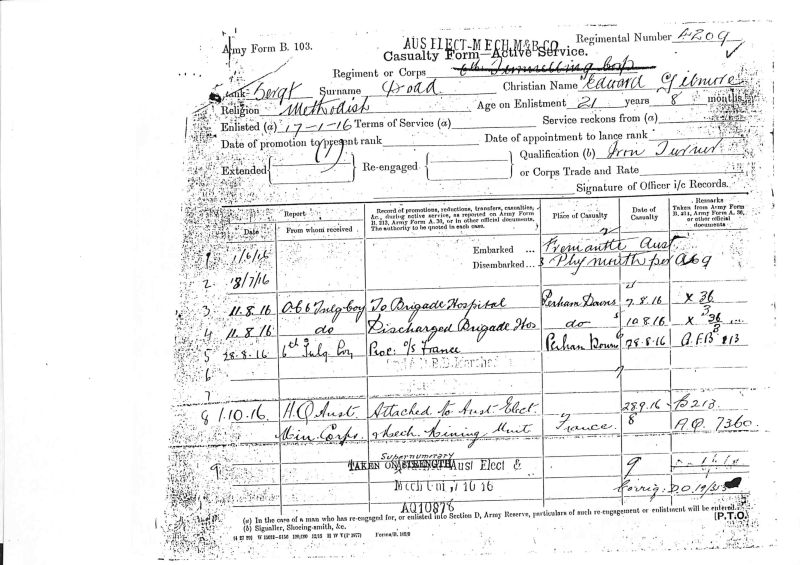 Army Form B. 103.
AUS ELECT-MECH. M & B CO.
Regimental Number 4209
Casualty Form—Active Service.
Regiment or Corps 6th Tunnelling Corp
Rank Sergt Surname Christian Name Edward
Religion Methodist Age on Enlistment 21 years 8 months
Enlisted (a) 17-1-16 Terms of Service (a) Service reckons from (a)
Date of promotion to present rank Date of appointment to lance rank
Extended Re-engaged Qualification (b) Iron Turner
or Corps Trade and Rate
Signature of Officer i/c Records.
Report
Date From whom received
Record of promotions, reductions, transfers, casualties, &c., during active service, as reported on Army Form B. 213, Army Form A. 36, or in other official documents. The authority to be quoted in each case.
Place of Casualty
Date of Casualty
Remarks
Taken from Army Form B. 213, Army Form A. 36, or other official documents
1 1/6/16 Embarked ... Fremantle Aust.
2 18/7/16 Disembarked ... Plymouth per A69
3 11.8.16 Ob 6 Tnlg Coy To Brigade Hospital Perham Downs 7.8.16 X 36
4 11.8.16 do Discharged Brigade Hos do 10.8.16 X 36
5 28.8.16 6th Tnlg Coy Proc: o/s France Perham Downs 28.8.16 A.F.B 213
6
7
8 1.10.16. H.Q Aust. Attached to Aust. Elect. 28.9.16 B213
Min. Corps. & Mech. Mining Unit France. A.Q. 7360
9 Supernumerary
TAKEN ON STRENGTH Aust Elect &
Mech 16
Corrig: D.O.
AQ10878
(a) In the case of a man who has re-engaged for, or enlisted into Section D, Army Reserve, particulars of such re-engagement or enlistment will be entered.
(b) Signaller, Shoeing-smith, &c.
[P.T.O.